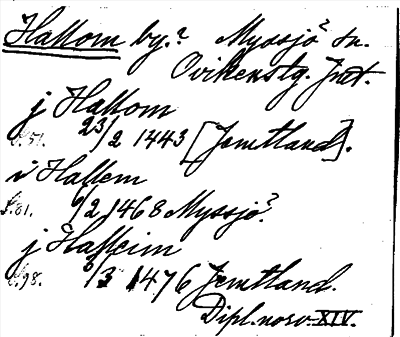 Hallom by.? Myssjö? sn.
Ovikenstg. Jmt.
j Hallom
S.51. 23/2 1443 [Jemtland].
i Hallem
S.81. 9/2 1468 Myssjö?
j Halleim
S.98. 9/3 1476 Jemtland.
Dipl. norv. XIV.